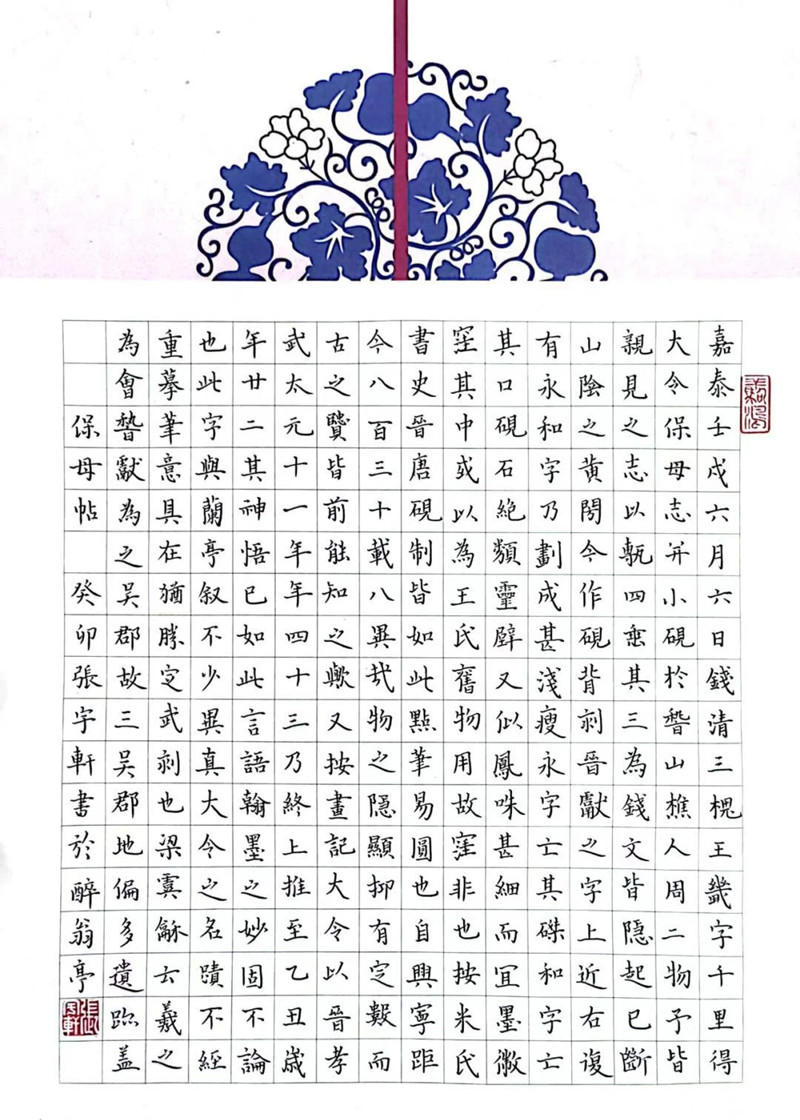 嘉泰壬戌六月六日錢清三槐王畿字千里得
大令保母志并小硯於稽山樵人周二物予皆
親見之志以甎四垂其三為錢文皆隱起已斷
山陰之黃閍今作硯背刻晉獻之字上近右復
有永和字乃劃成甚淺瘦永字亡其磔和字亡
其口硯石絕類靈壁又似鳳咮甚細而宜墨微
窪其中或以為王氏舊物用故窪非也按米氏
書史晉唐硯制皆如此點筆易圓也自興寧距
今八百三十載八異哉物之隱顯抑有定數而
古之贒皆前能知之歟又按畫記大令以晉孝
武太元十一年年四十三乃終上推至乙丑歲
年廿二其神悟已如此言語翰墨之妙固不論
也此字與蘭亭叙不少異真大令之名蹟不經
重摹筆意具在猶勝定武刻也梁虞龢云羲之
為會稽獻為之吳郡故三吳郡地偏多遺跡蓋
保母帖 癸卯張宇軒書於醉翁亭
張宇軒